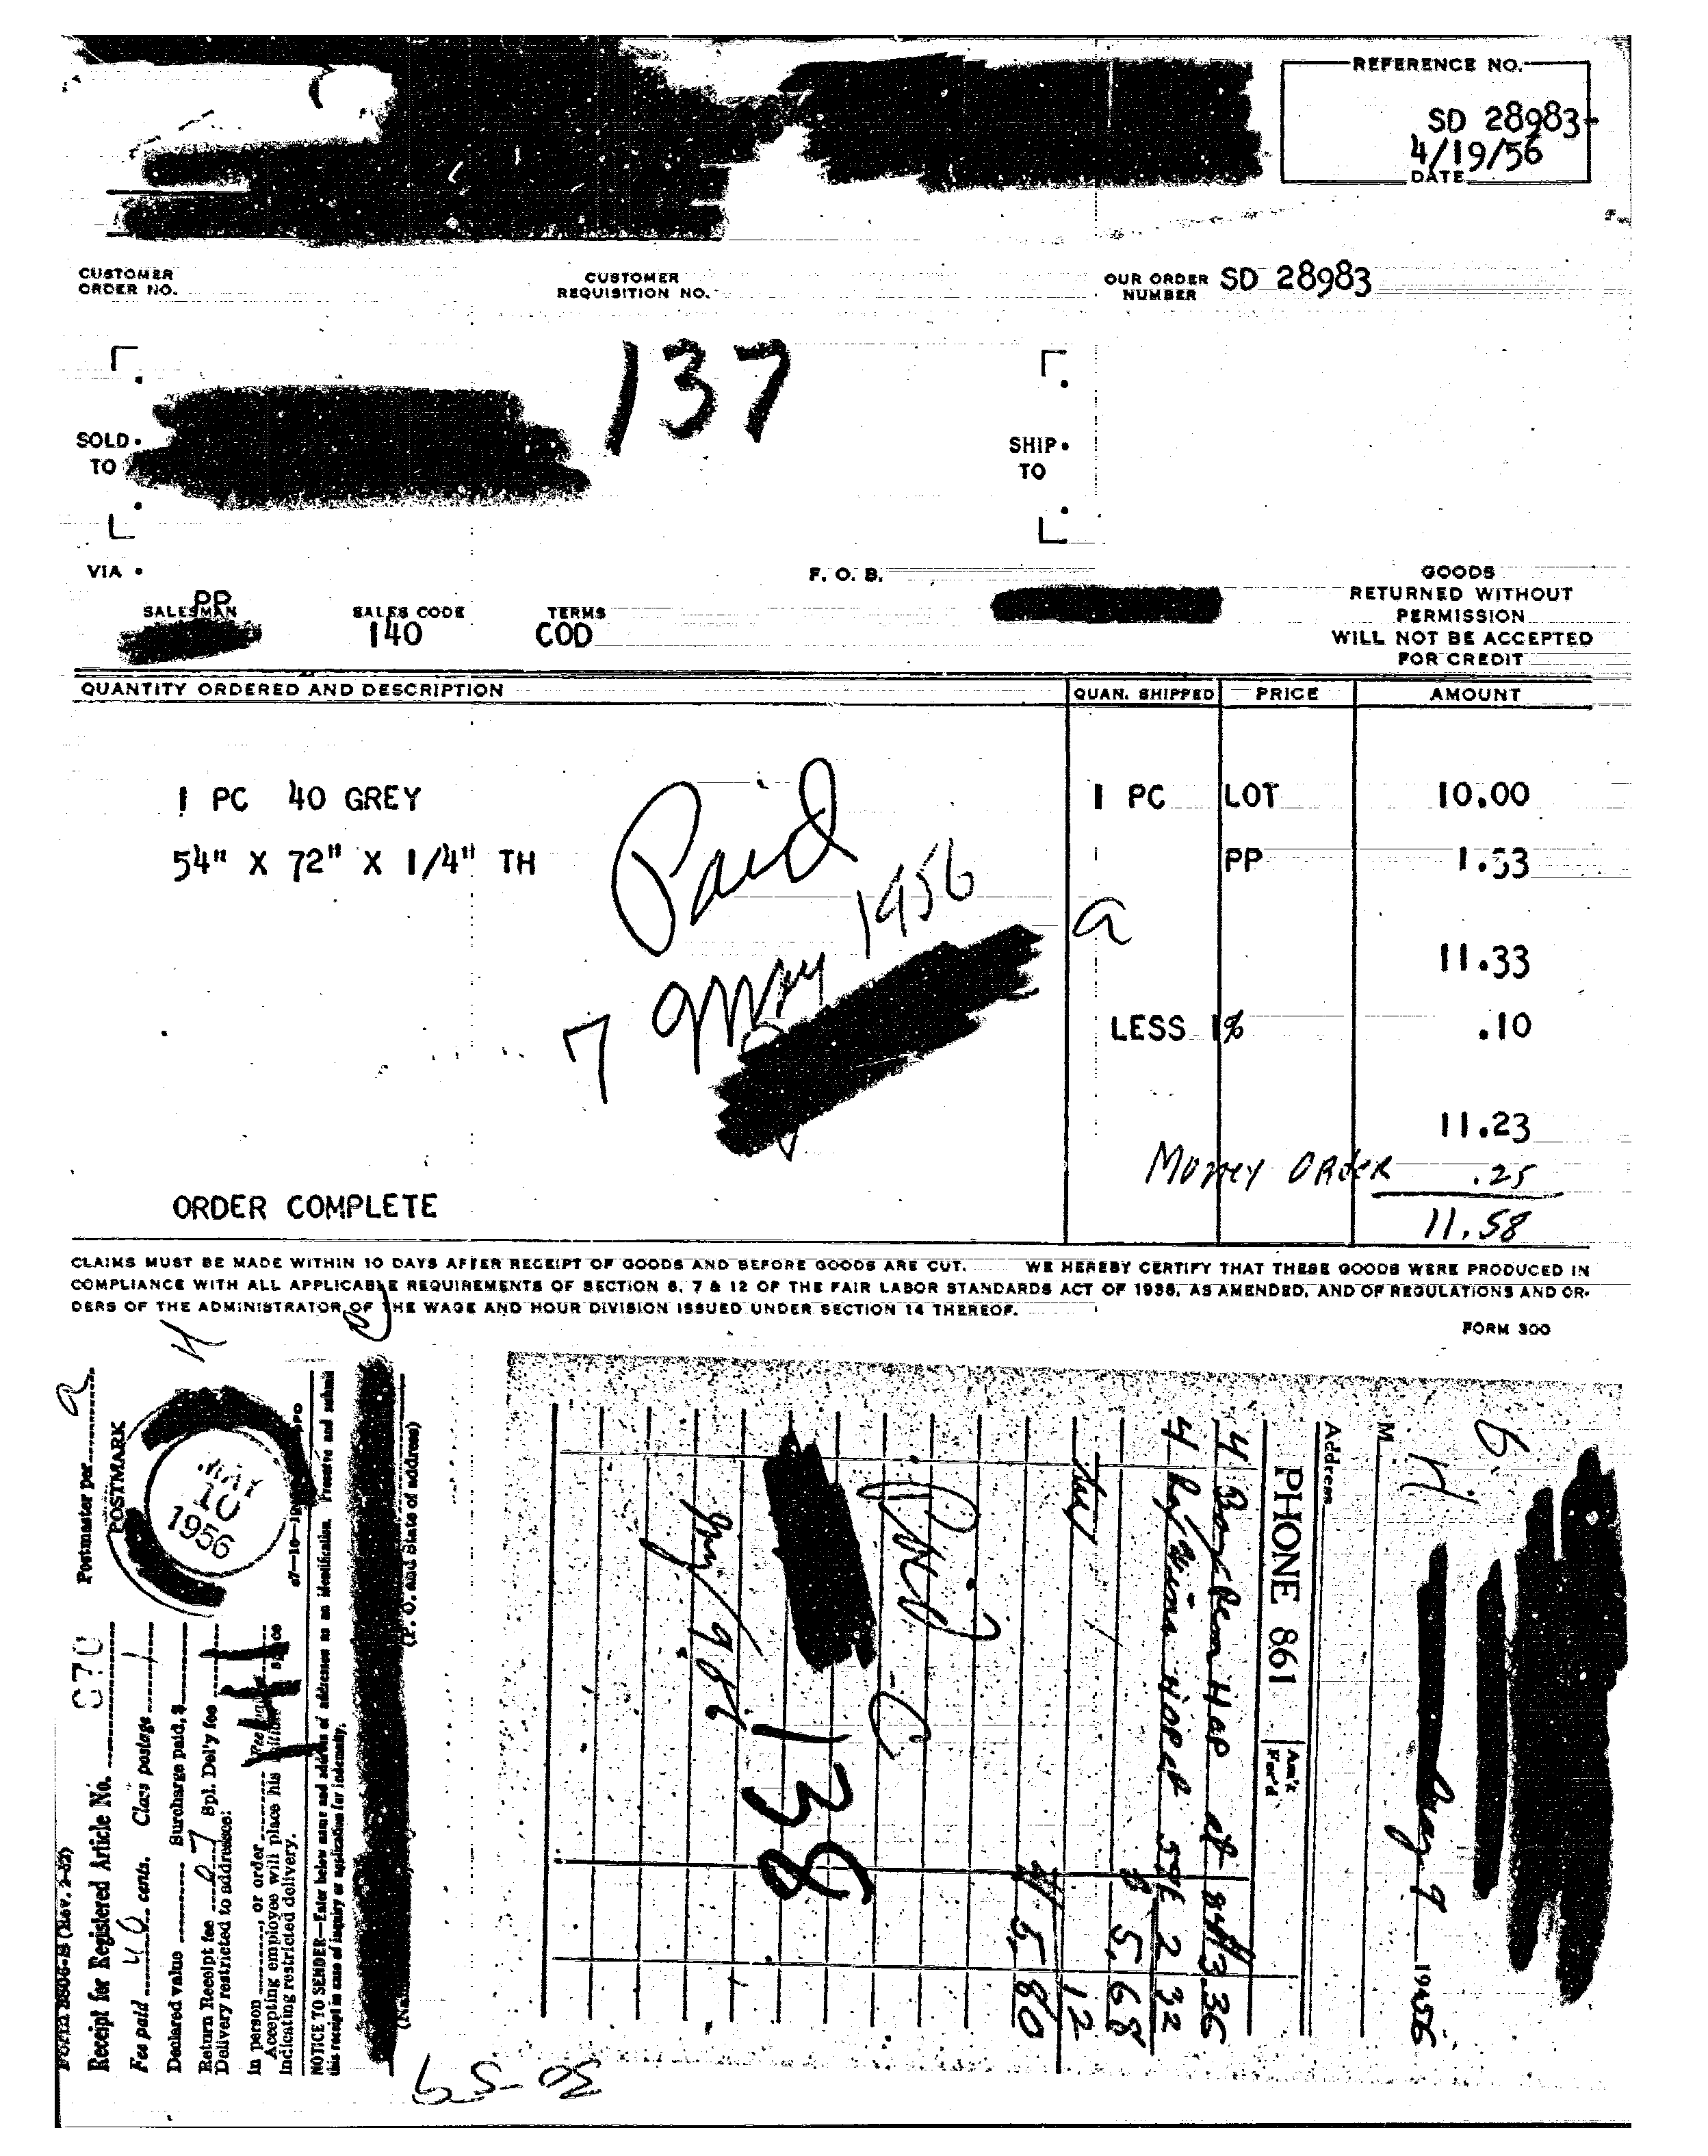 REFERENCE NO.
SD 28983
4/19/56
DATE
CUSTOMER
ORDER NO.
CUSTOMER
REQUISITION NO.
OUR ORDER
NUMBER
SD 28983
137
SOLD
TO
SHIP
TO
VIA
PP
F. O. B.
GOODS
RETURNED WITHOUT
PERMISSION
WILL NOT BE ACCEPTED
FOR CREDIT
SALESMAN
SALES CODE
140
TERMS
COD
QUANTITY ORDERED AND DESCRIPTION QUAN. SHIPPED PRICE AMOUNT
1 PC 40 GREY 1 PC LOT 10.00
54" X 72" X 1/4" TH PP 1.33
Paid
7 May 1956
a
11.33
LESS 1% .10
11.23
Money Order .25
11.58
ORDER COMPLETE
CLAIMS MUST BE MADE WITHIN 10 DAYS AFTER RECEIPT OF GOODS AND BEFORE GOODS ARE CUT. WE HEREBY CERTIFY THAT THESE GOODS WERE PRODUCED IN
COMPLIANCE WITH ALL APPLICABLE REQUIREMENTS OF SECTION 6, 7 & 12 OF THE FAIR LABOR STANDARDS ACT OF 1938, AS AMENDED, AND OF REGULATIONS AND OR-
DERS OF THE ADMINISTRATOR OF THE WAGE AND HOUR DIVISION ISSUED UNDER SECTION 14 THEREOF.
FORM 300
Receipt for Registered Article No. 870
Postmaster per
Fee paid 40 cents. Class postage 1
POSTMARK
MAY
10
1956
Declared value Surcharge paid, $
Return Receipt fee 07 Spl. Del'y fee
Delivery restricted to addressee:
in person, or order
Accepting employee will place his
indicating restricted delivery.
NOTICE TO SENDER—Enter below name and address of addressee as an identification. Preserve and submit
this receipt in case of inquiry or application for indemnity.
(P. O. and State of address)
M
May 9 1956
Address
PHONE 861
Am't
Rec'd
3 36
2 32
5.68
12
5.80
Paid
138